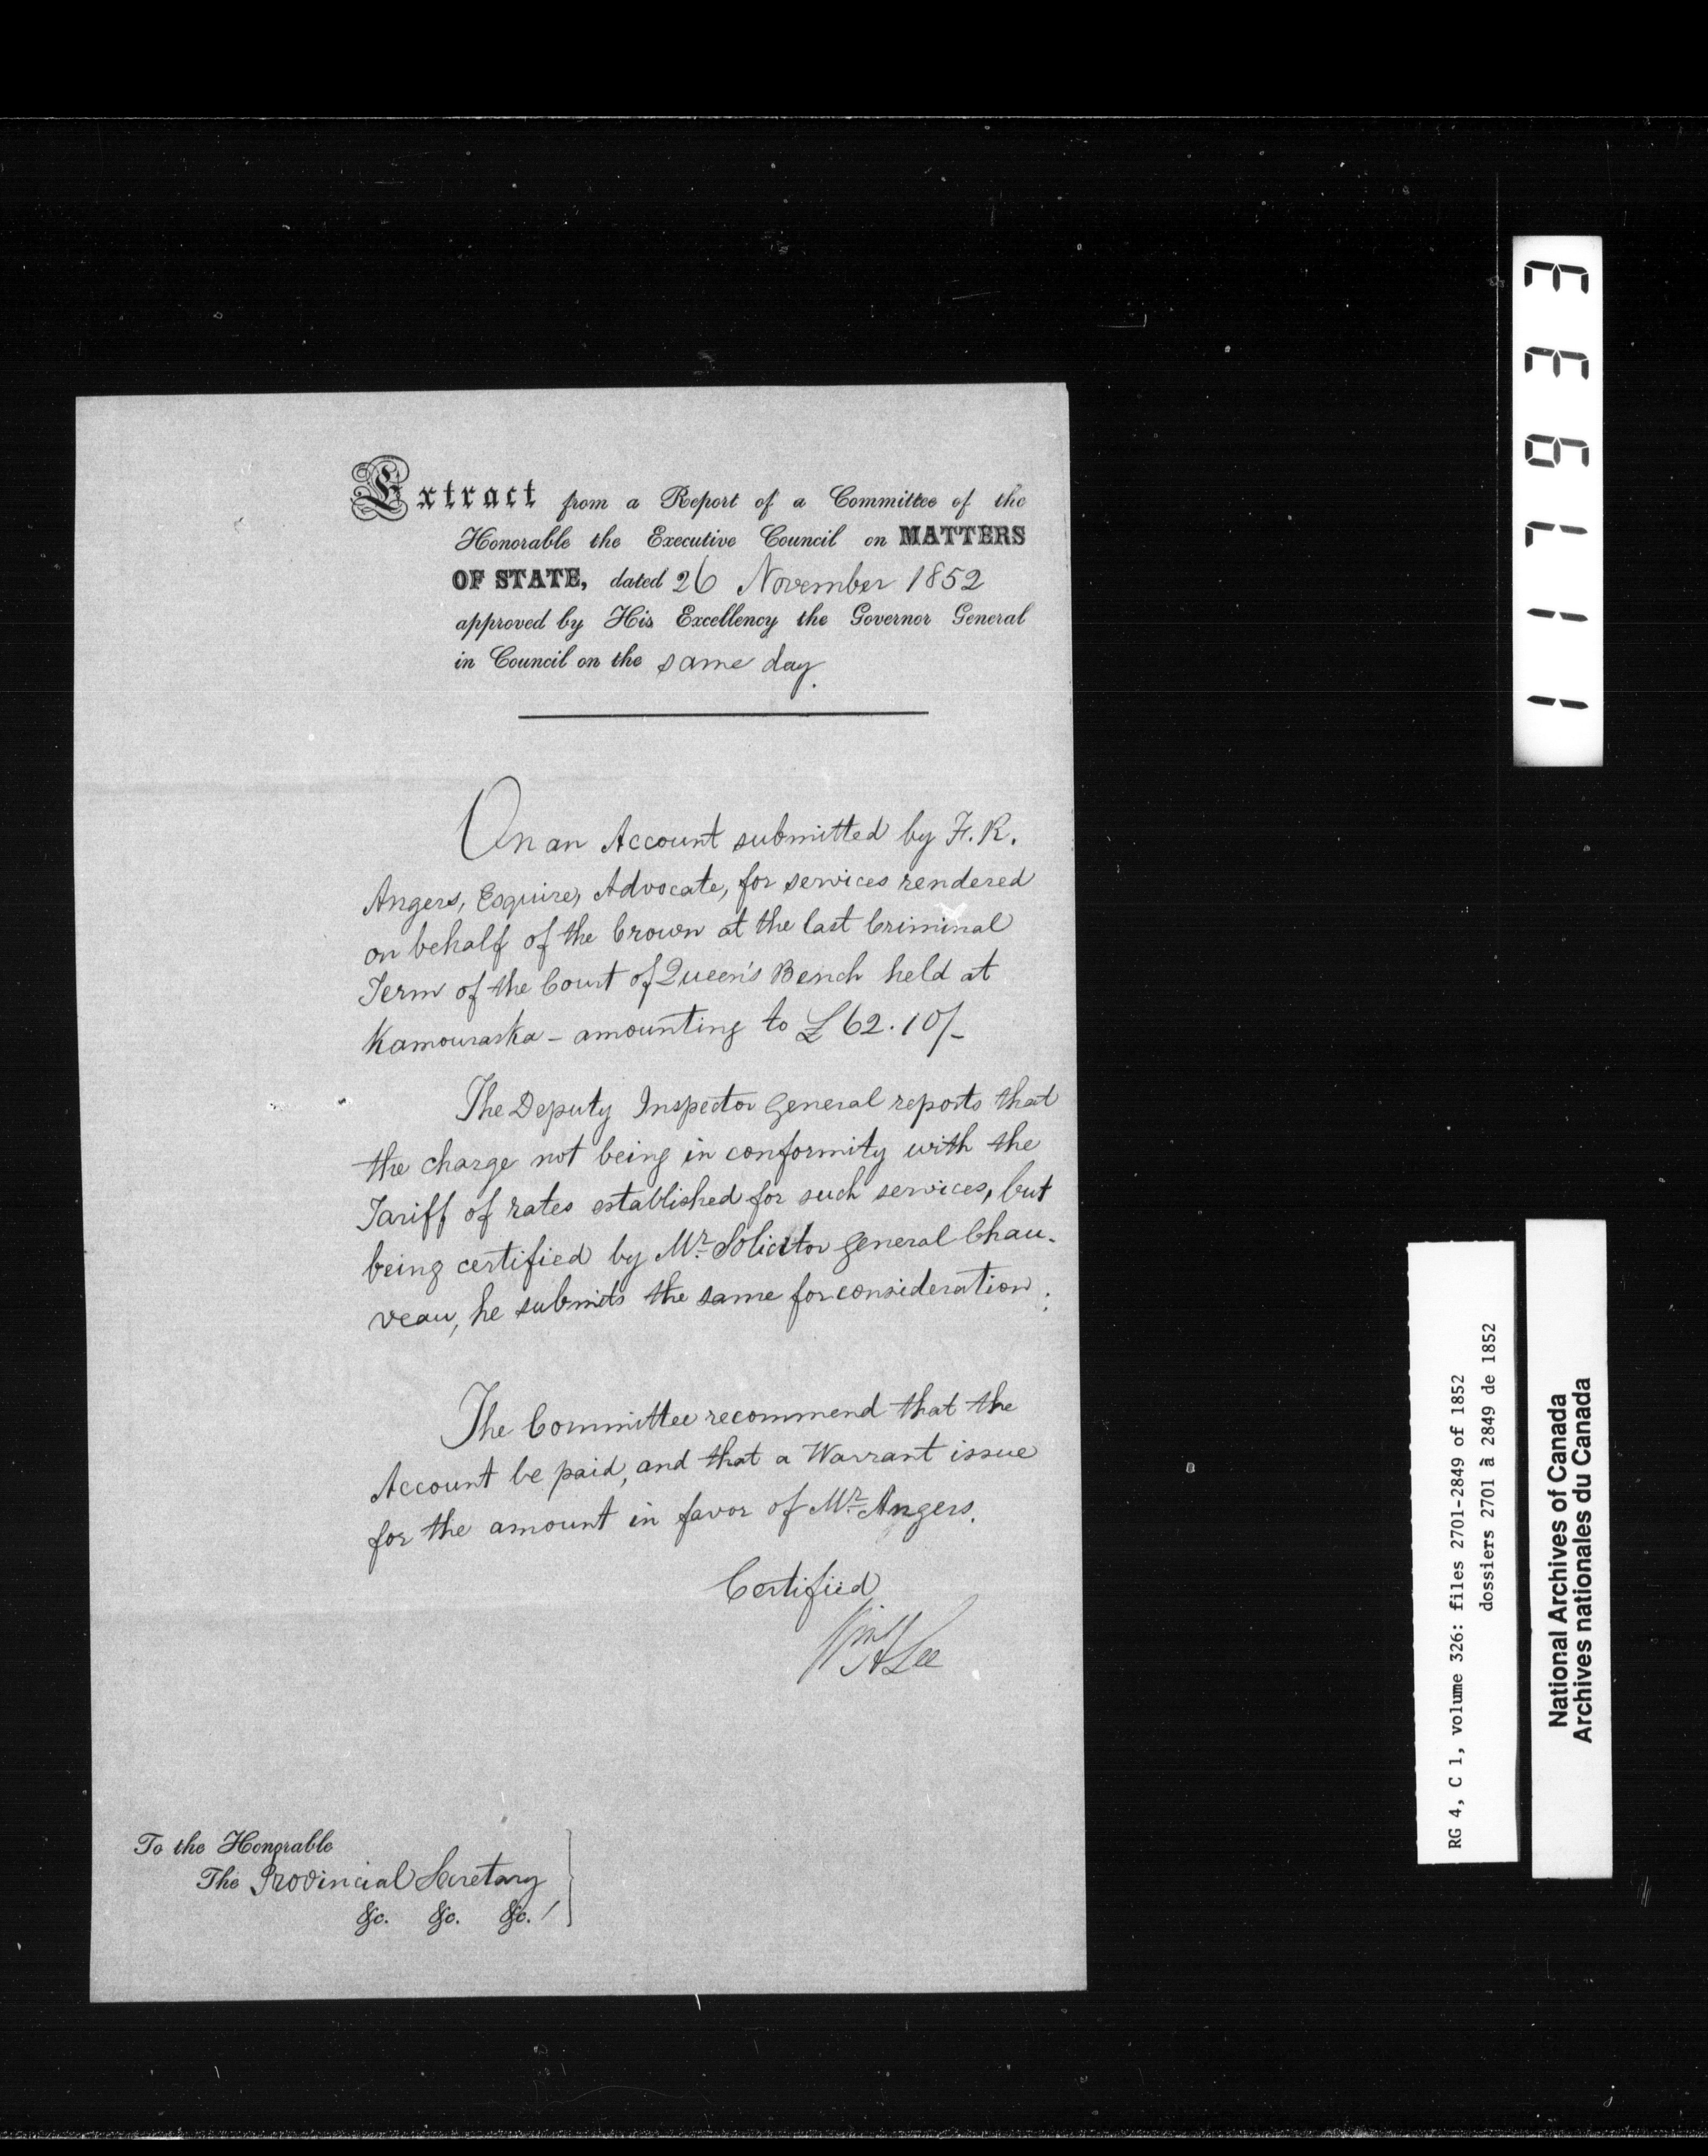 Extract from a Report of a Committee of the
Honorable the Executive Council on MATTERS
OF STATE, dated 26 November 1852
approved by His Excellency the Governor General
in Council on the same day.
On an Account submitted by F. R.
Angers, Esquire, Advocate, for services rendered
on behalf of the Crown at the last Criminal
Term of the Court of Queen's Bench held at
Kamouraska - amounting to £62.10/-
The Deputy Inspector General reports that
the charge not being in conformity with the
Tariff of rates established for such services, but
being certified by Mr. Solicitor General Chau-
veau, he submits the same for consideration.
The Committee recommend that the
Account be paid, and that a Warrant issue
for the amount in favor of Mr. Angers.
Certified
Wm H Lee
To the Honorable
The Provincial Secretary
&c. &c. &c.
117633
RG 4, C 1, volume 326: files 2701-2849 of 1852
dossiers 2701 à 2849 de 1852
National Archives of Canada
Archives nationales du Canada